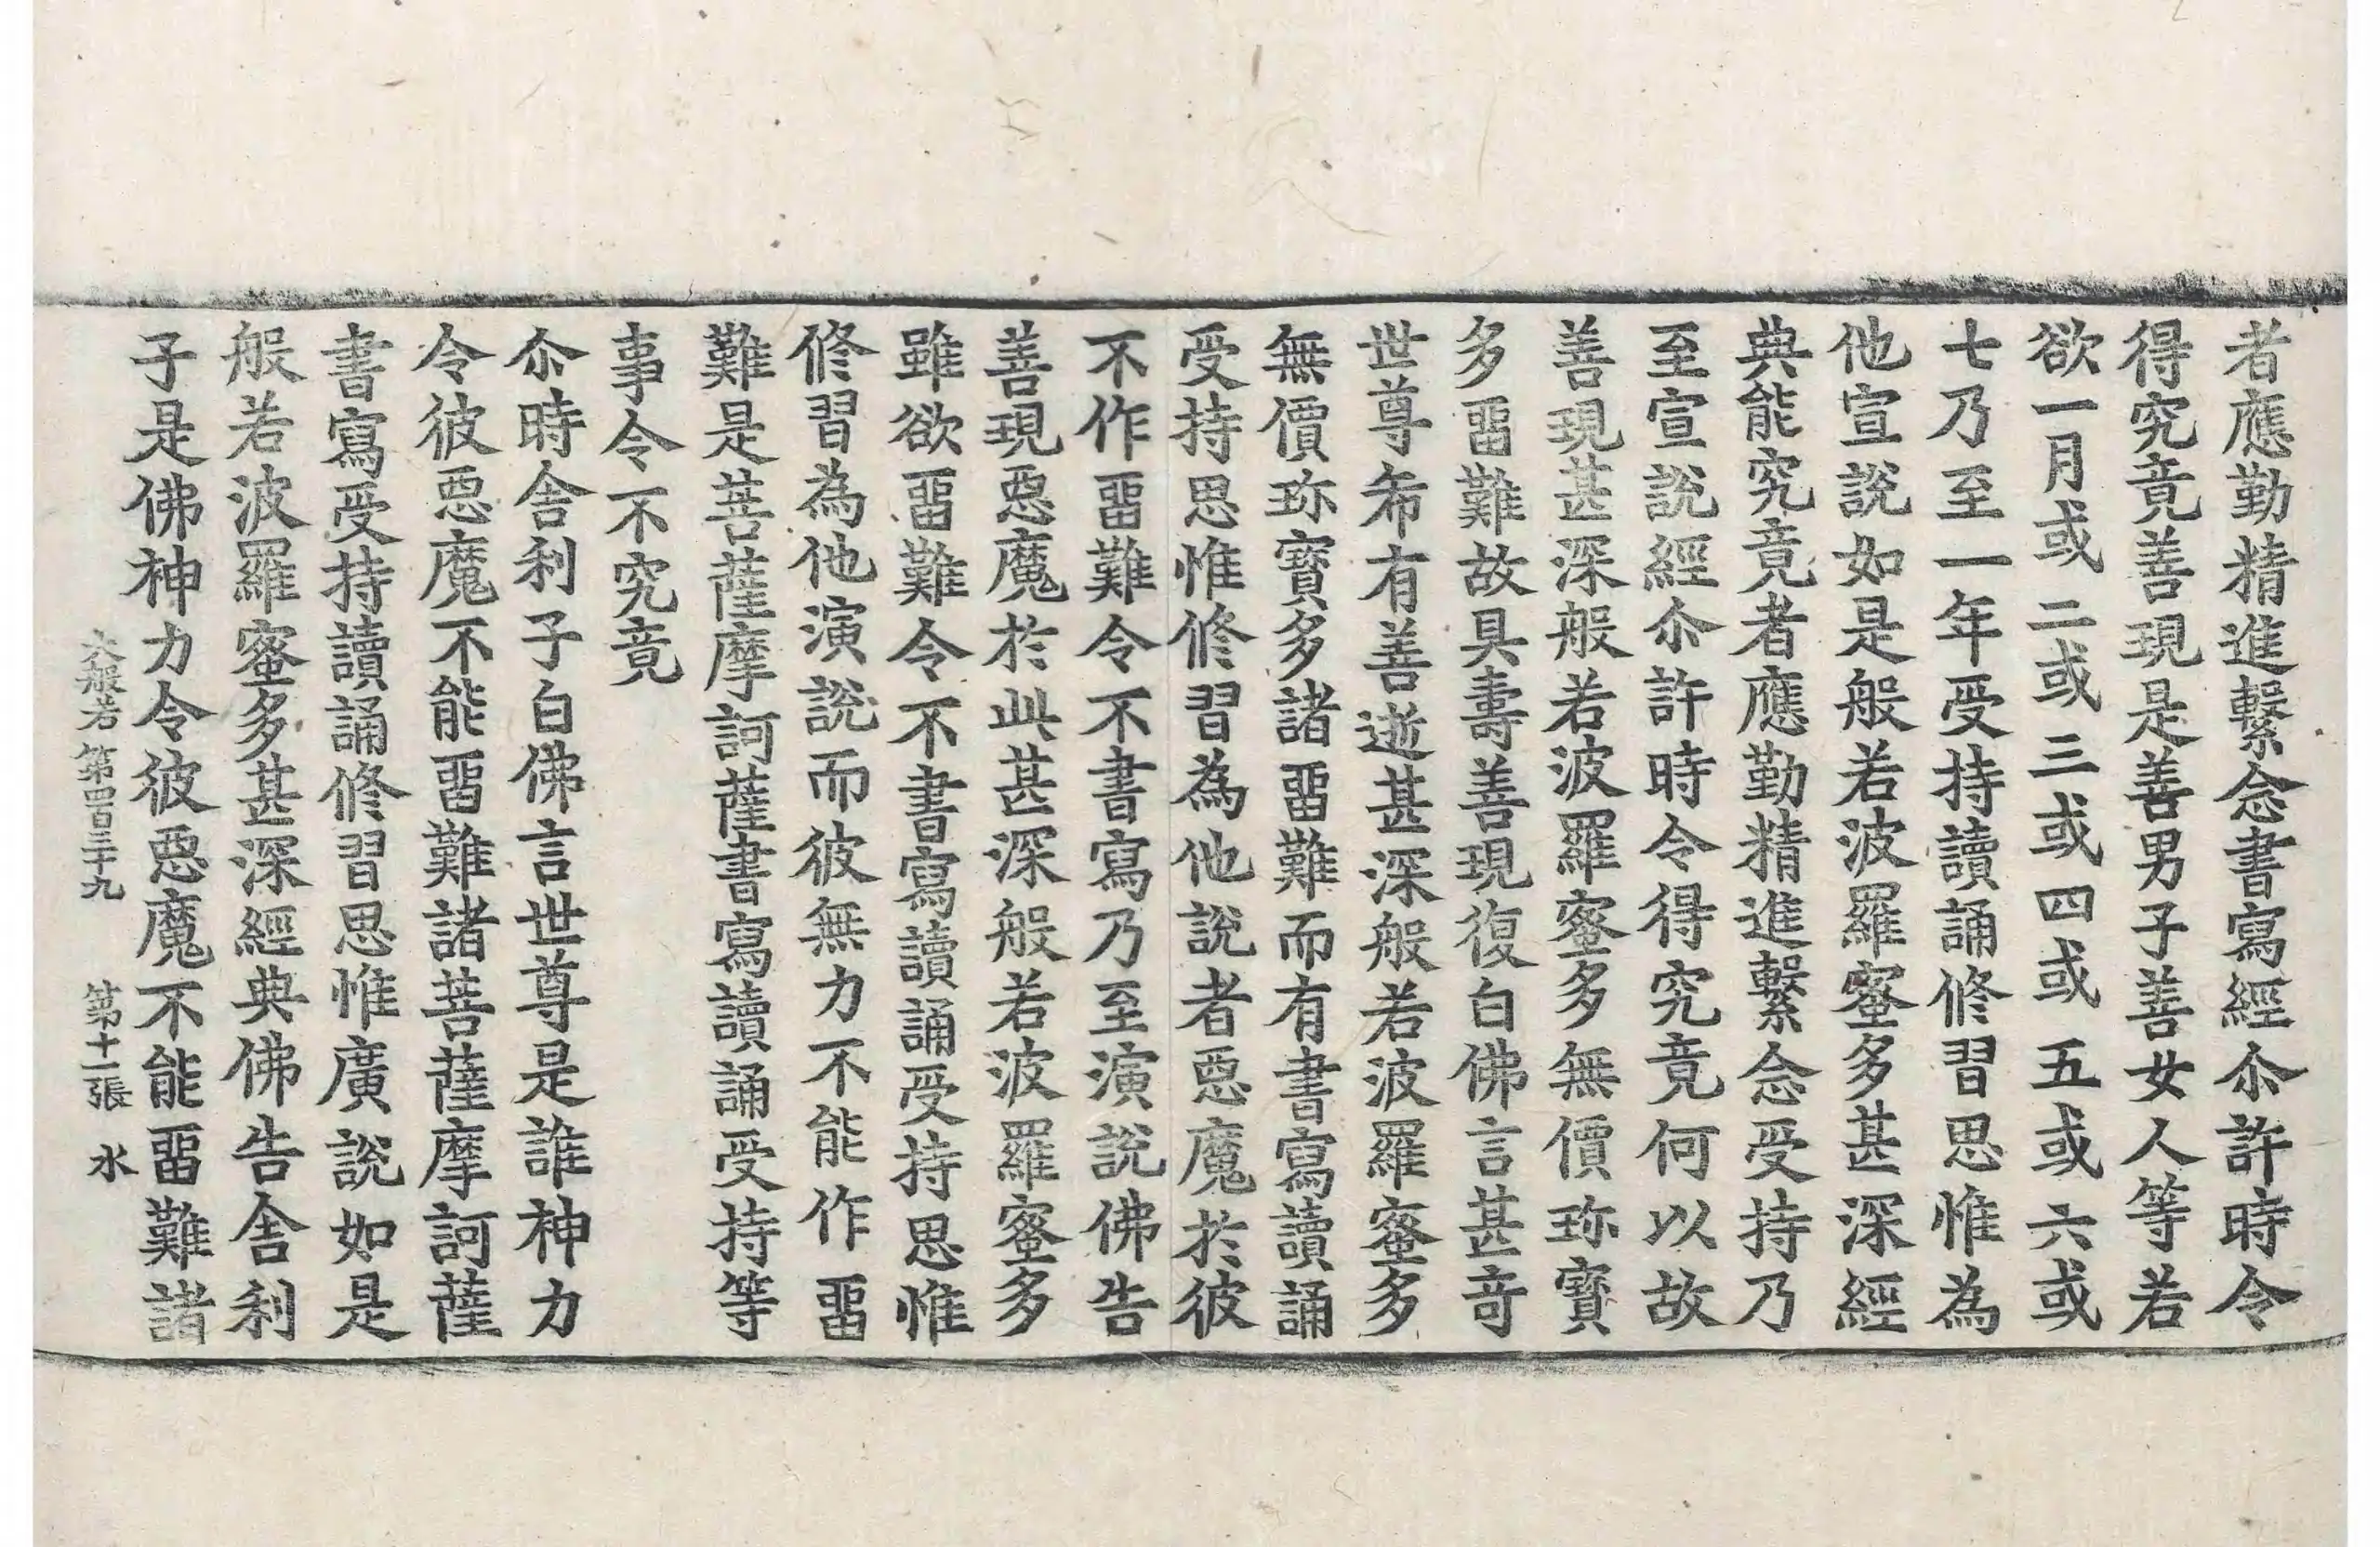 者應勤精進繫念書寫經尒許時令
得究竟善現是善男子善女人等若
欲一月或二或三或四或五或六或
七乃至一年受持讀誦修習思惟為
他宣說如是般若波羅蜜多甚深經
典能究竟者應勤精進繫念受持乃
至宣說經尒許時令得究竟何以故
善現甚深般若波羅蜜多無價珎寶
多畱難故具壽善現復白佛言甚奇
世尊希有善逝甚深般若波羅蜜多
無價珎寶多諸畱難而有書寫讀誦
受持思惟修習為他說者惡魔於彼
不作畱難令不書寫乃至演說佛告
善現惡魔於此甚深般若波羅蜜多
雖欲畱難令不書寫讀誦受持思惟
修習為他演說而彼無力不能作畱
難是菩薩摩訶薩書寫讀誦受持等
事令不究竟
尒時舍利子白佛言世尊是誰神力
令彼惡魔不能畱難諸菩薩摩訶薩
書寫受持讀誦修習思惟廣說如是
般若波羅蜜多甚深經典佛告舍利
子是佛神力令彼惡魔不能畱難諸
大般若第四百三十九 第十一張 水